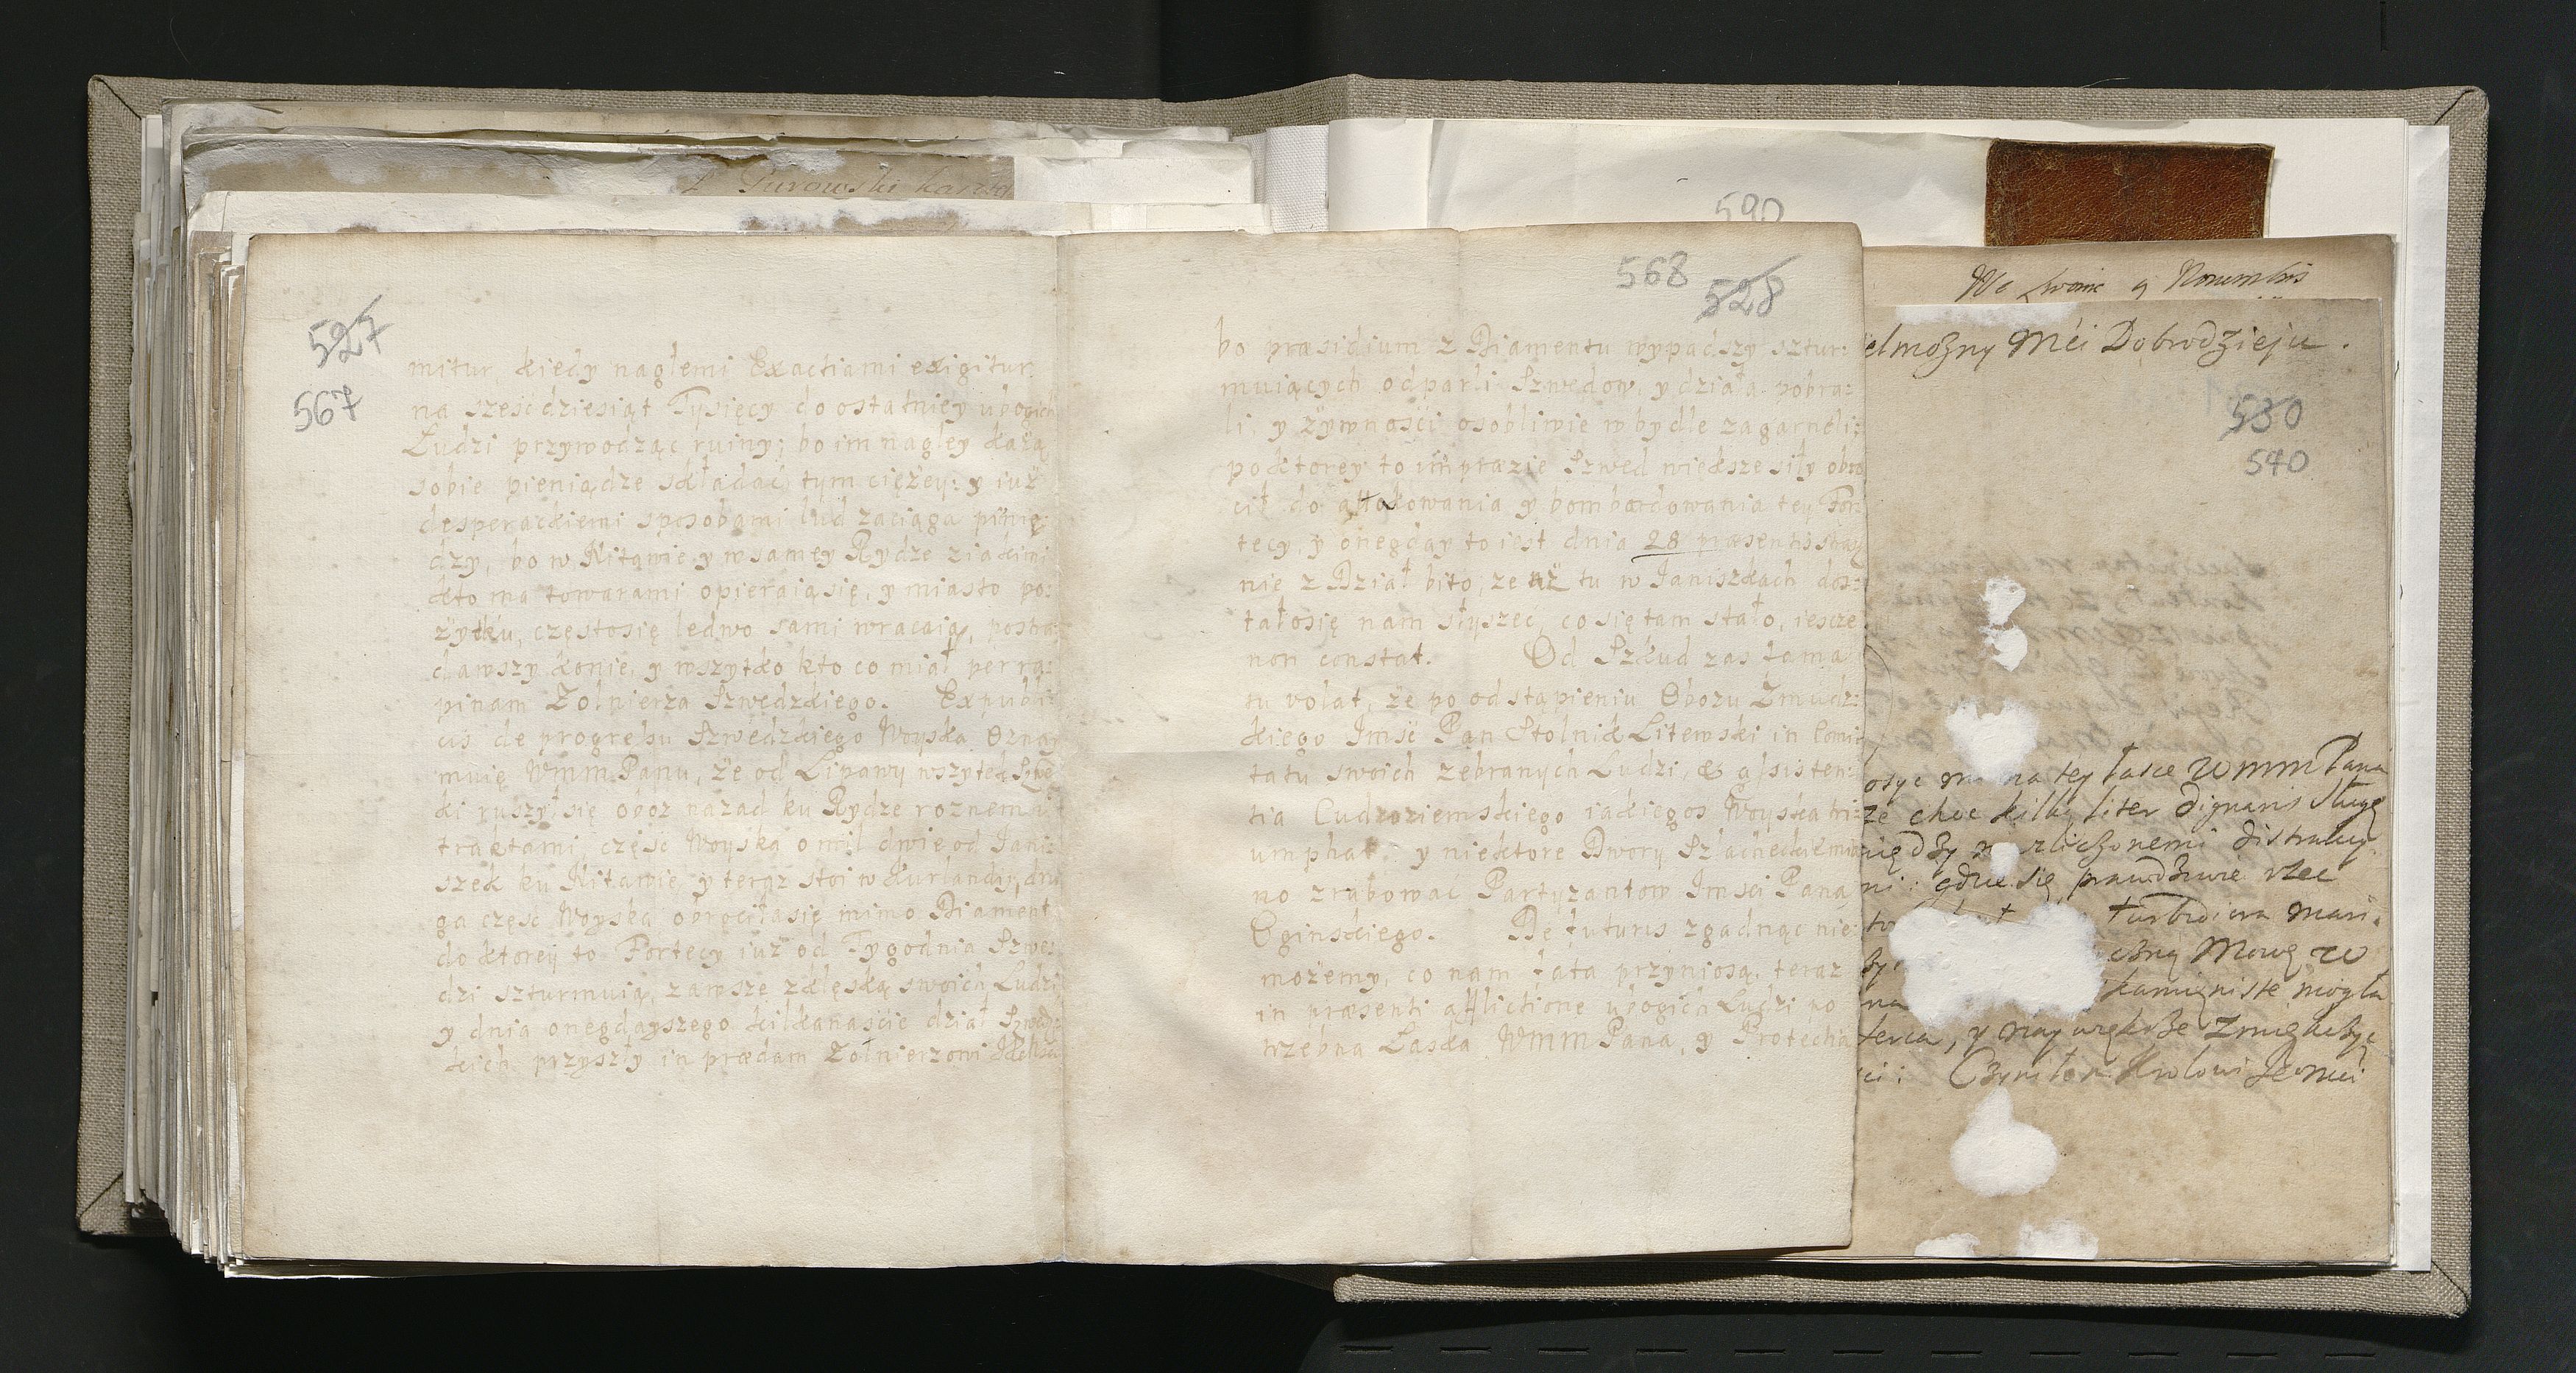 Purowski
590
527
567
mitur, kiedy nagłemi Exactiami exigitur
na sześćdziesiąt Tysięcy do ostatniey ubogich
Ludzi przywodząc ruiny; bo im nagley każą
sobie pieniądze składać tym ciężey: y iuż
desperackiemi sposobami lud zaciąga pinię:
dzy, bo w Mitawie y w samey Rydze z iakimi
kto ma towarami opieraią się, y miasto po:
żytku, często się ledwo sami wracaią, postra:
dawszy konie, y wszytko kto co miał per ra:
pinam Zołnierza Szwedzkiego. Ex publi:
cis de progressu Szwedzkiego Woyska Ozna:
muię Wmm Panu, że od Lipawy wszytek Szwe
ki ruszył się oboz nazad ku Rydze roznemi
traktami, część Woyska o mil dwie od Jani:
szek ku Mitawie y teraz stoi w Kurlandy, dru
ga część Woyska obrociła się mimo Diament
do ktorey to Fortecy iuż od Tygodnia Szwe:
dzi szturmuią, zawsze z klęską swoich Ludzi
y dnia onegdayszego kilkanaście dział Szwed:
kich przyszły in prædam Zołnierzowi
568
528
bo præsidium z Diamentu wypadszy sztur:
muiących odparli Szwedow, y działa pobra:
li, y żywności osobliwie w bydle zagarneli:
po ktorey to imprazie Szwed wieksze siły obro
cił do attakowania y bombardowania tey For:
tecy, y onegday to iest dnia 28 præsentis
nie z Dział bito, ze aż tu w Janiszkach dos:
tało się nam słyszeć, co się tam stało, ieszcze
non constat. Od Szkud zas fama
tu volat, że po odstąpieniu Obozu Zmudz:
kiego Jmść Pan Stolnik Litewski in Comi:
tatu swoich zebranych Ludzi, & assisten:
tia Cudzoziemskiego iakiegos Woyska tri:
umphat: y niektore Dwory Szlacheckie
no zrabować Partyzantow Jmsci Pana
Oginskiego. De futuris zgadnąc nie:
możemy, co nam fata przyniosą, teraz
in præsenti afflictione ubogich Ludzi po
trzebna Łaska Wmm Pana, y Protectia
9 Novembris
elmożny Mći Dobrodzieju.
530
540
na tey łasce Wmm Pana
że choc kilką liter dignaris sługę
distrakcy
gdzie się prawdziwie rzec
mari
Mową w
kamięniste mogła
y naywiększe
Krolowi Jeomći